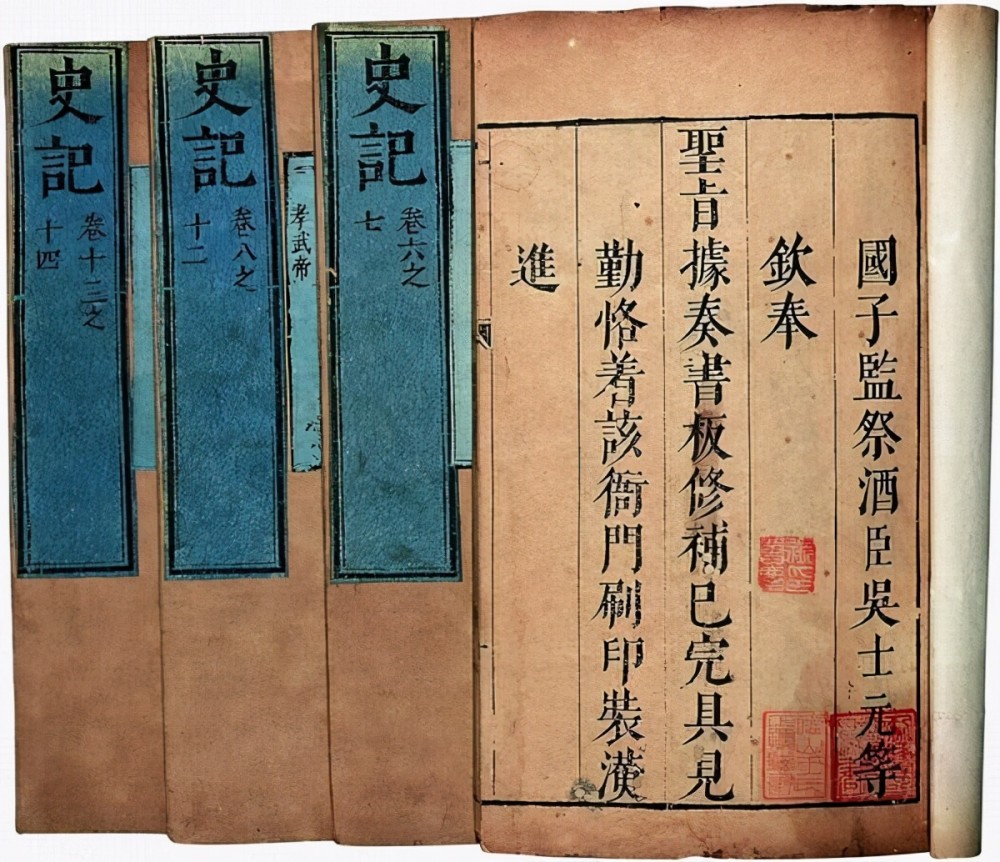 國子監祭酒臣吳士元等
欽奉
聖旨據奏書板修補已完具見
勤恪着該衙門刷印裝潢
進
史記
卷六之
七
史記
卷八之
十二
孝武帝
史記
卷十三之
十四